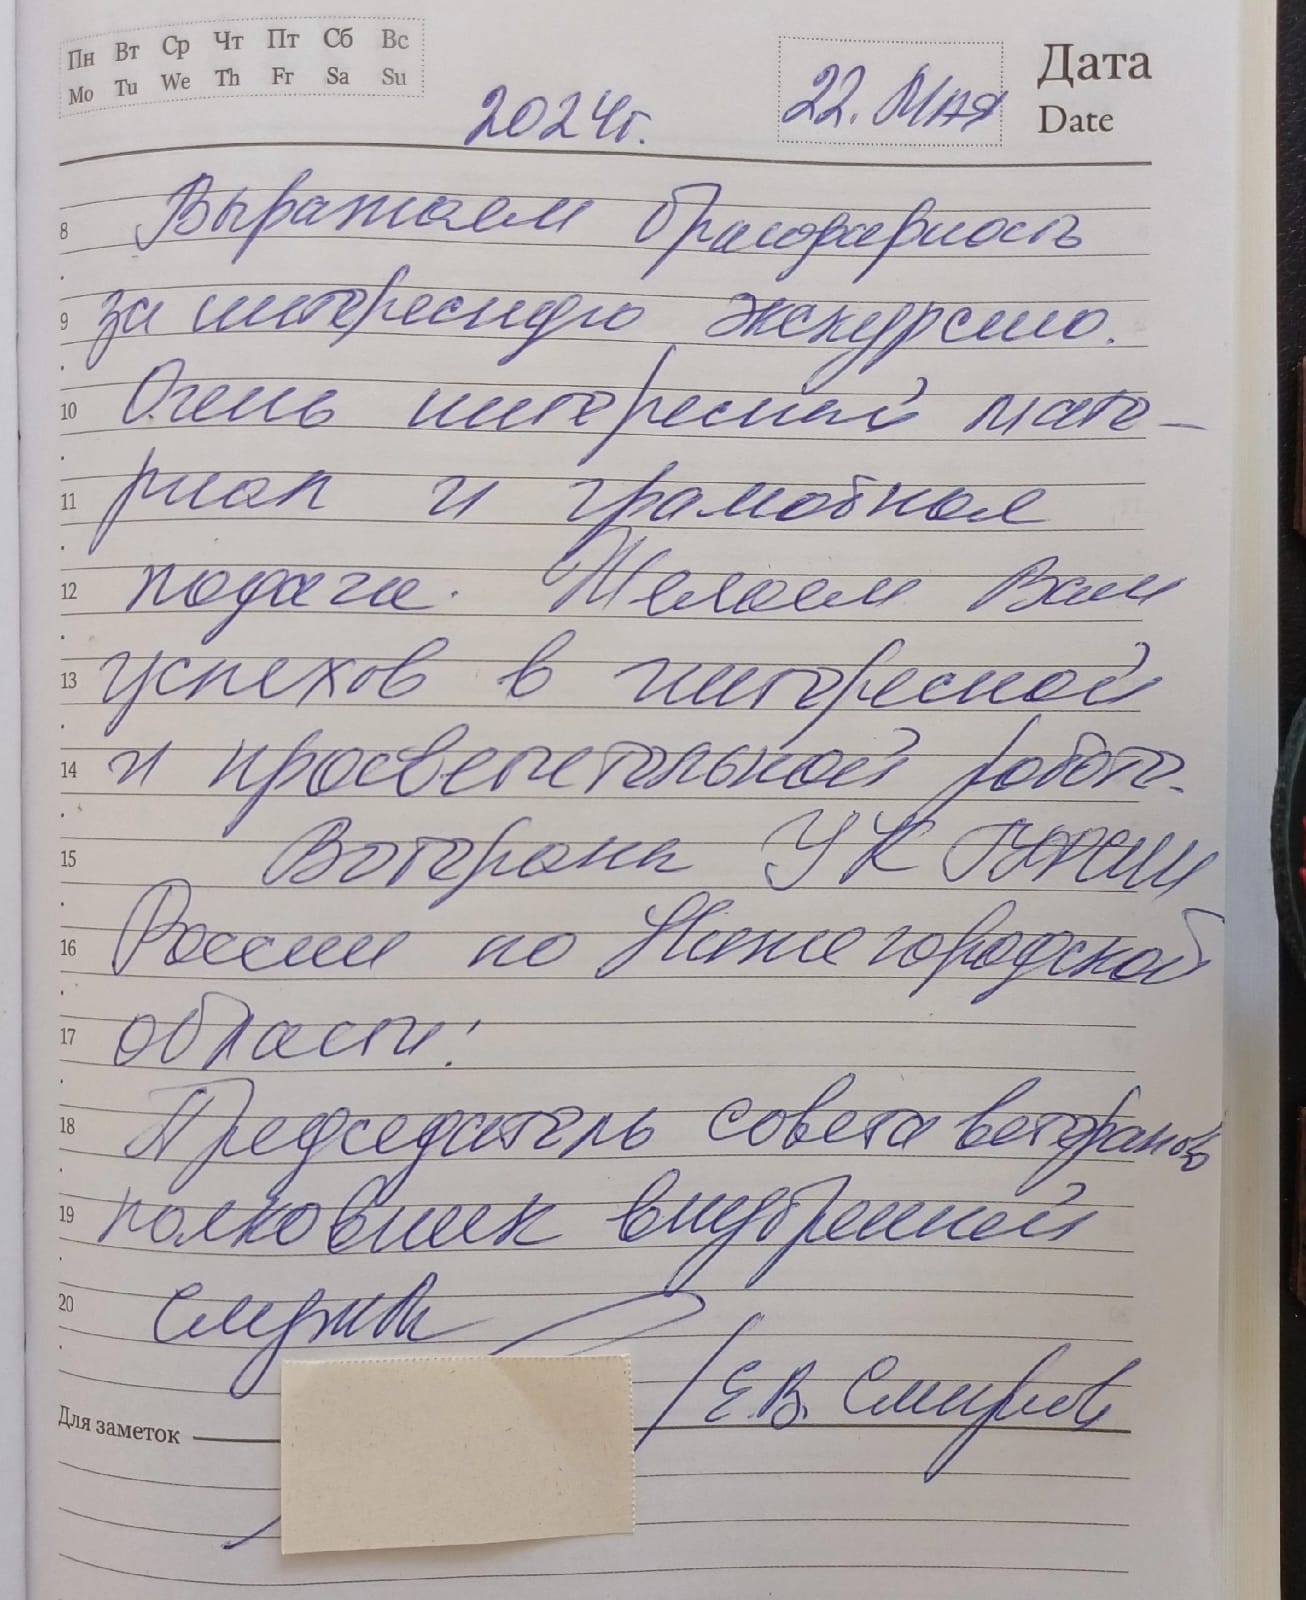 Пн Вт Ср Чт Пт Сб Вс
Mo Tu We Th Fr Sa Su
2024г.
22. Мая
Дата
Date
8 Выражаем благодарность
9 за интересную экскурсию.
10 Очень интересный мате-
11 риал и грамотная
12 подача. Желаем Вам
13 успехов в интересной
14 и просветительной работе.
15 Ветераны УК ГУФСИН
16 России по Нижегородской
17 области:
18 Председатель совета ветеранов
19 полковник внутренней
20 службы
/Е.В. Смирнов
Для заметок